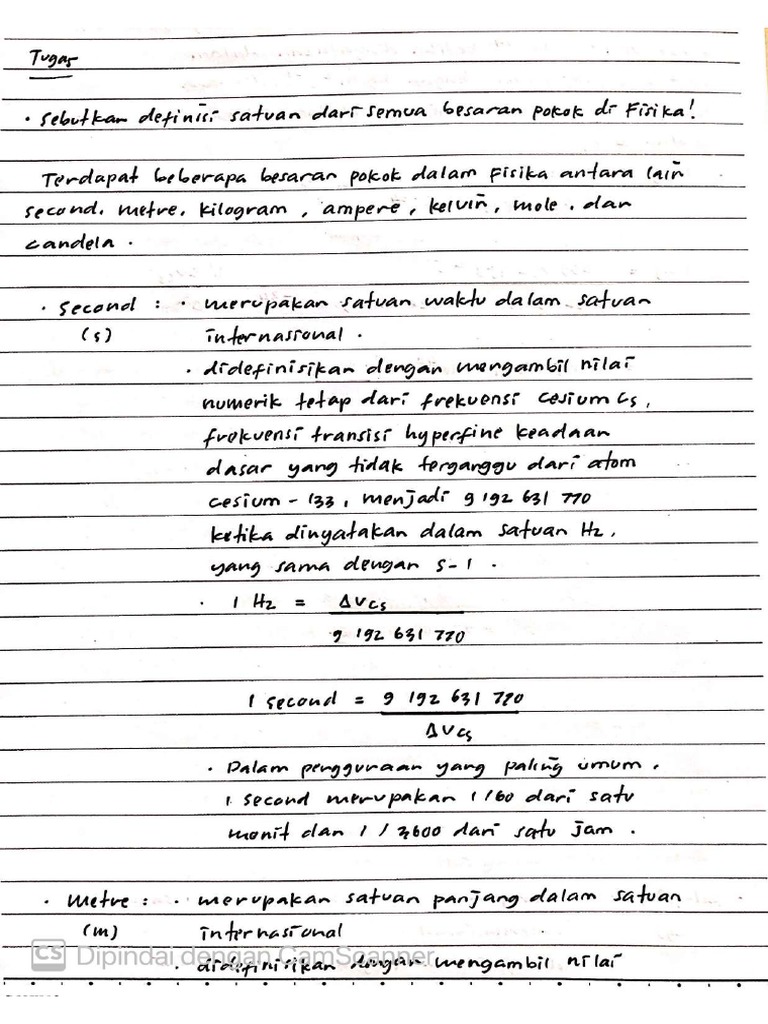 Tugas
• Sebutkan definisi satuan dari semua besaran pokok di Fisika!
Terdapat beberapa besaran pokok dalam Fisika antara lain
second, metre, kilogram, ampere, kelvin, mole, dan
candela.
• Second : • merupakan satuan waktu dalam satuan
(s) internasional.
• didefinisikan dengan mengambil nilai
numerik tetap dari frekuensi cesium Cs,
frekuensi transisi hyperfine keadaan
dasar yang tidak terganggu dari atom
cesium-133, menjadi 9 192 631 770
ketika dinyatakan dalam satuan Hz,
yang sama dengan s-1.
• 1 Hz = ΔVcs
9 192 631 770
1 second = 9 192 631 770
ΔVcs
• Dalam penggunaan yang paling umum,
1 second merupakan 1/60 dari satu
menit dan 1/3600 dari satu jam.
• Metre : • merupakan satuan panjang dalam satuan
(m) internasional
CS Dipindai dengan CamScanner
• didefinisikan dengan mengambil nilai